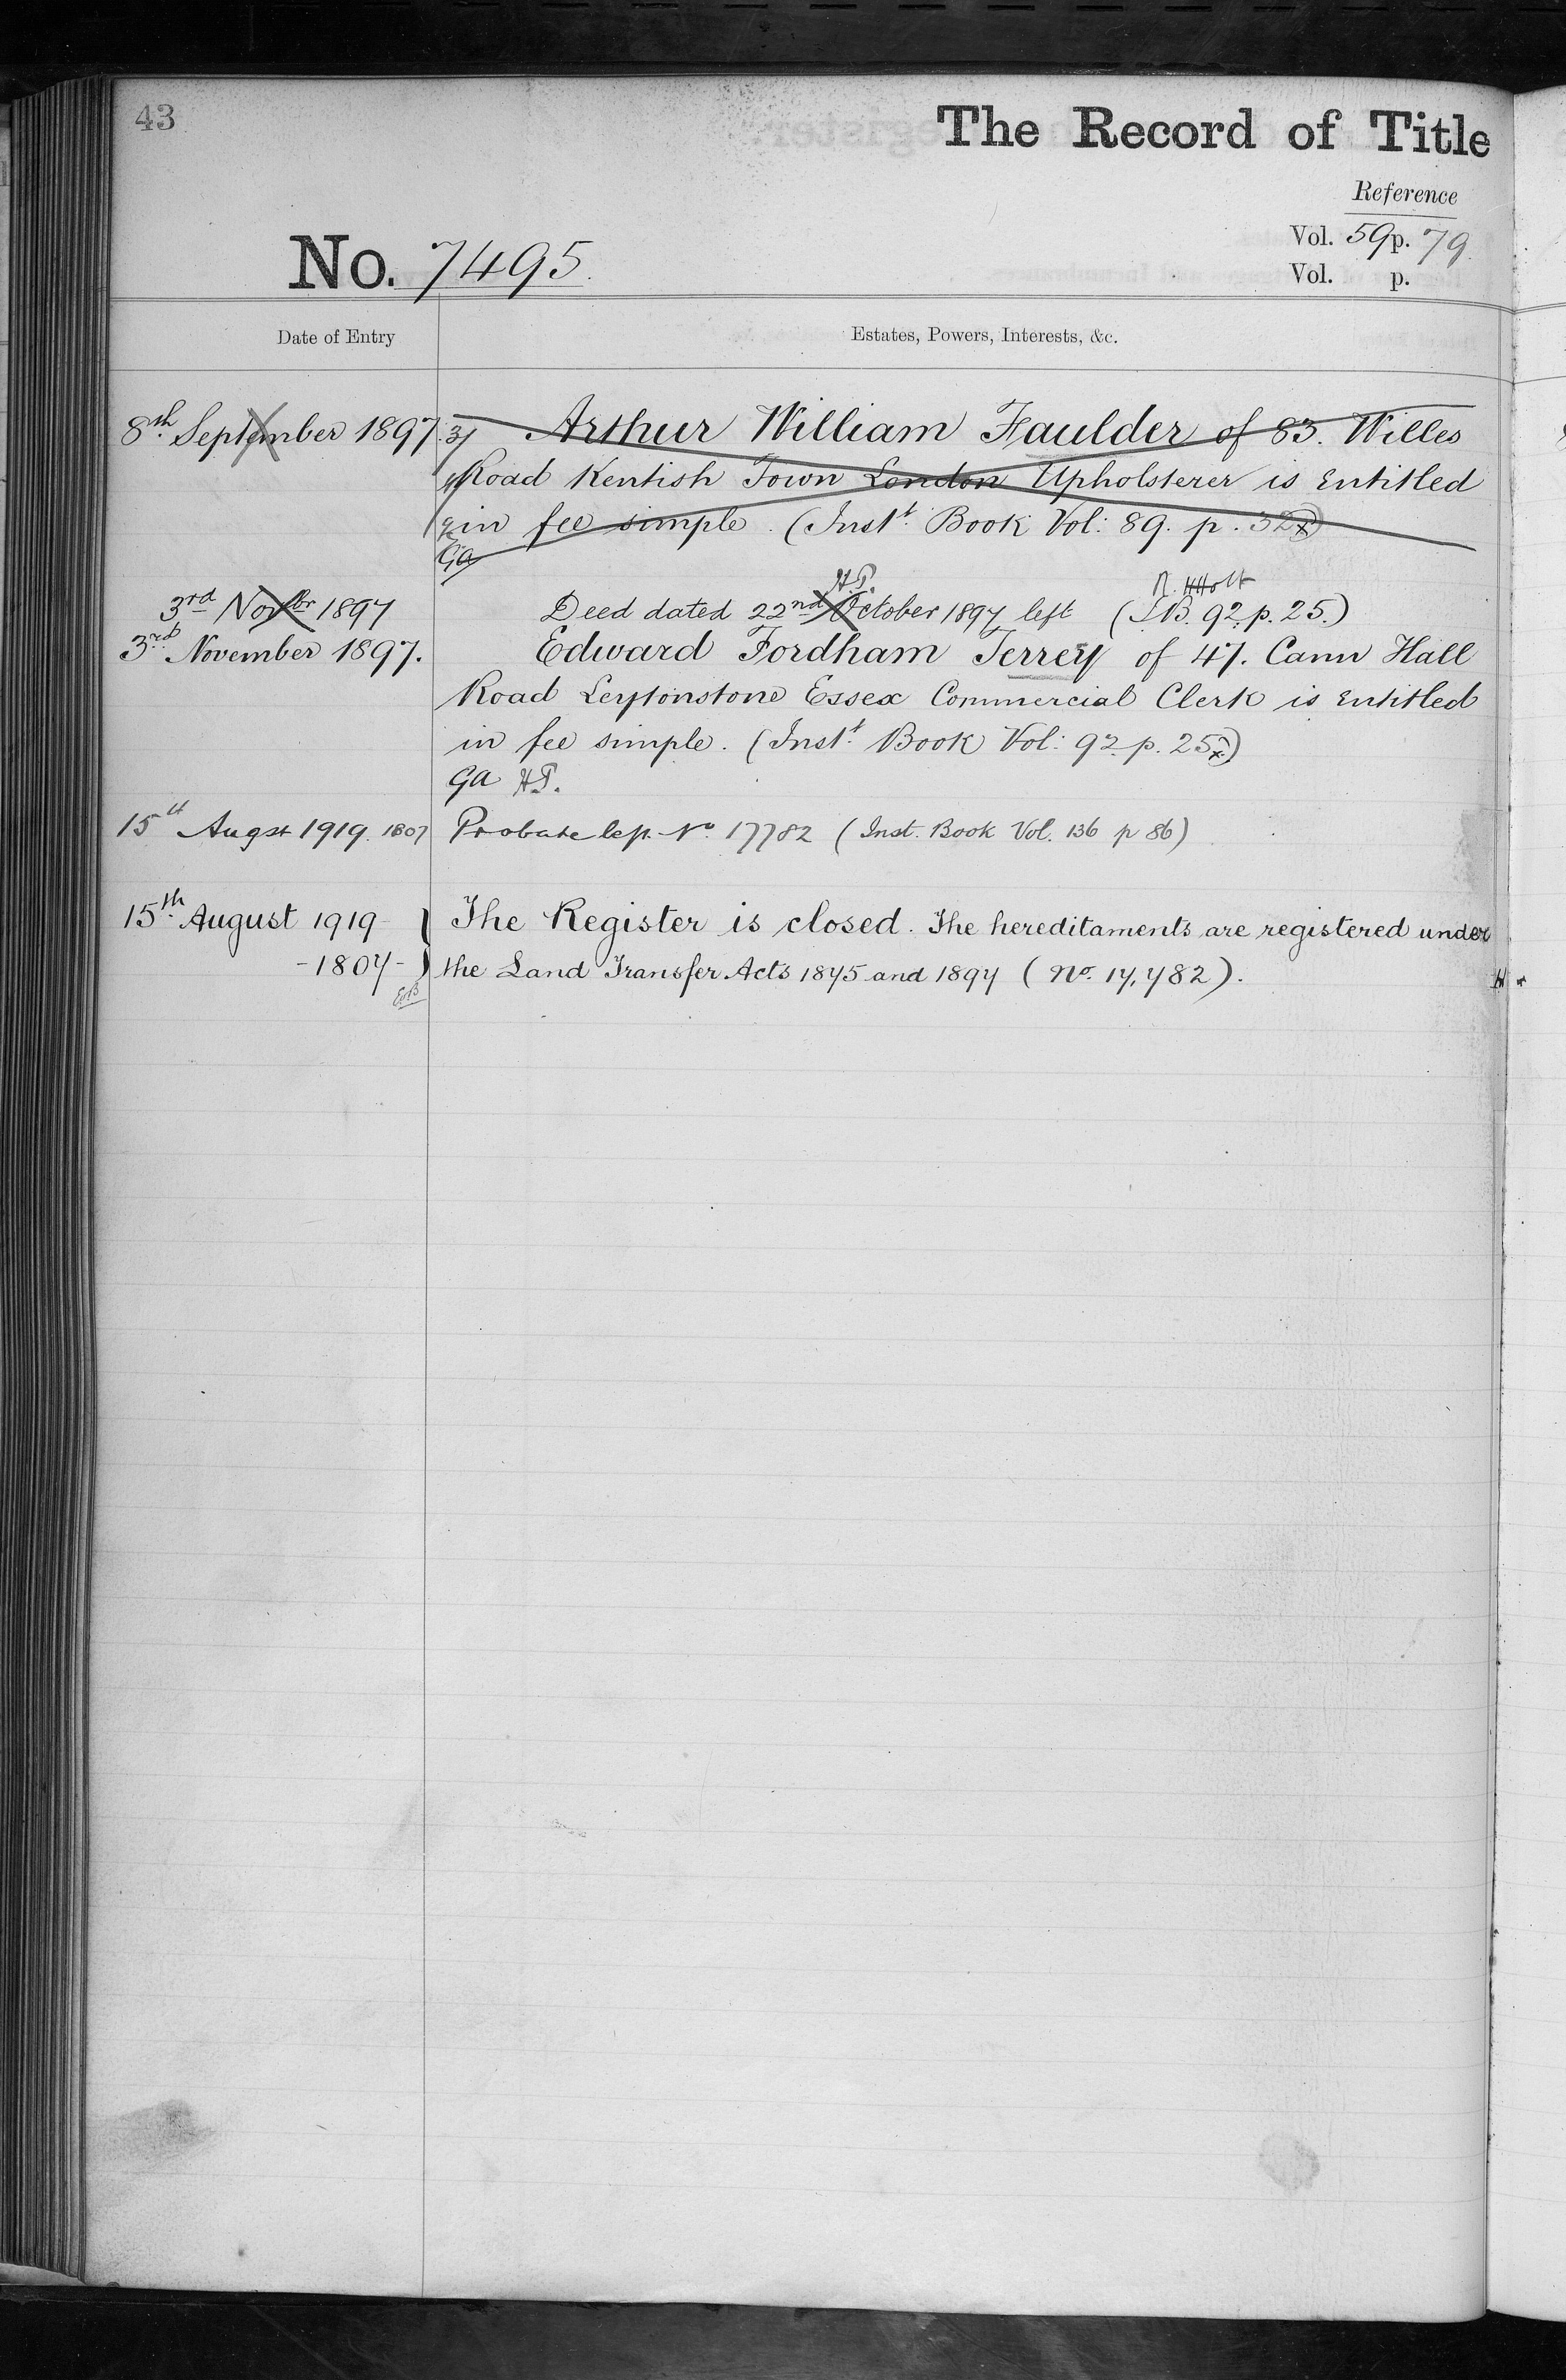 43
The Record of Title
Reference
Vol. 59 p. 79
Vol. p.
No. 7495.
Date of Entry
Estates, Powers, Interests, &c.
8th September 1897. Arthur William Faulder of 83. Willes
Road Kentish Town London Upholsterer is Entitled
in fee simple. (Instt. Book Vol: 89. p. 32)
Ga
H.T.
3rd Novbr 1897 Deed dated 22nd October 1897 left (I.B. 92. p. 25.)
3rd November 1897. Edward Fordham Terrey of 47. Cann Hall
Road Leytonstone Essex Commercial Clerk is Entitled
in fee simple. (Instt. Book Vol: 92. p. 25)
Ga H.T.
15th Augst 1919. 1807 Probate No. 17782 (Inst. Book Vol. 136 p 86)
15th August 1919 The Register is closed. The hereditaments are registered under
-1807- the Land Transfer Acts 1875 and 1897 (No. 17,782).